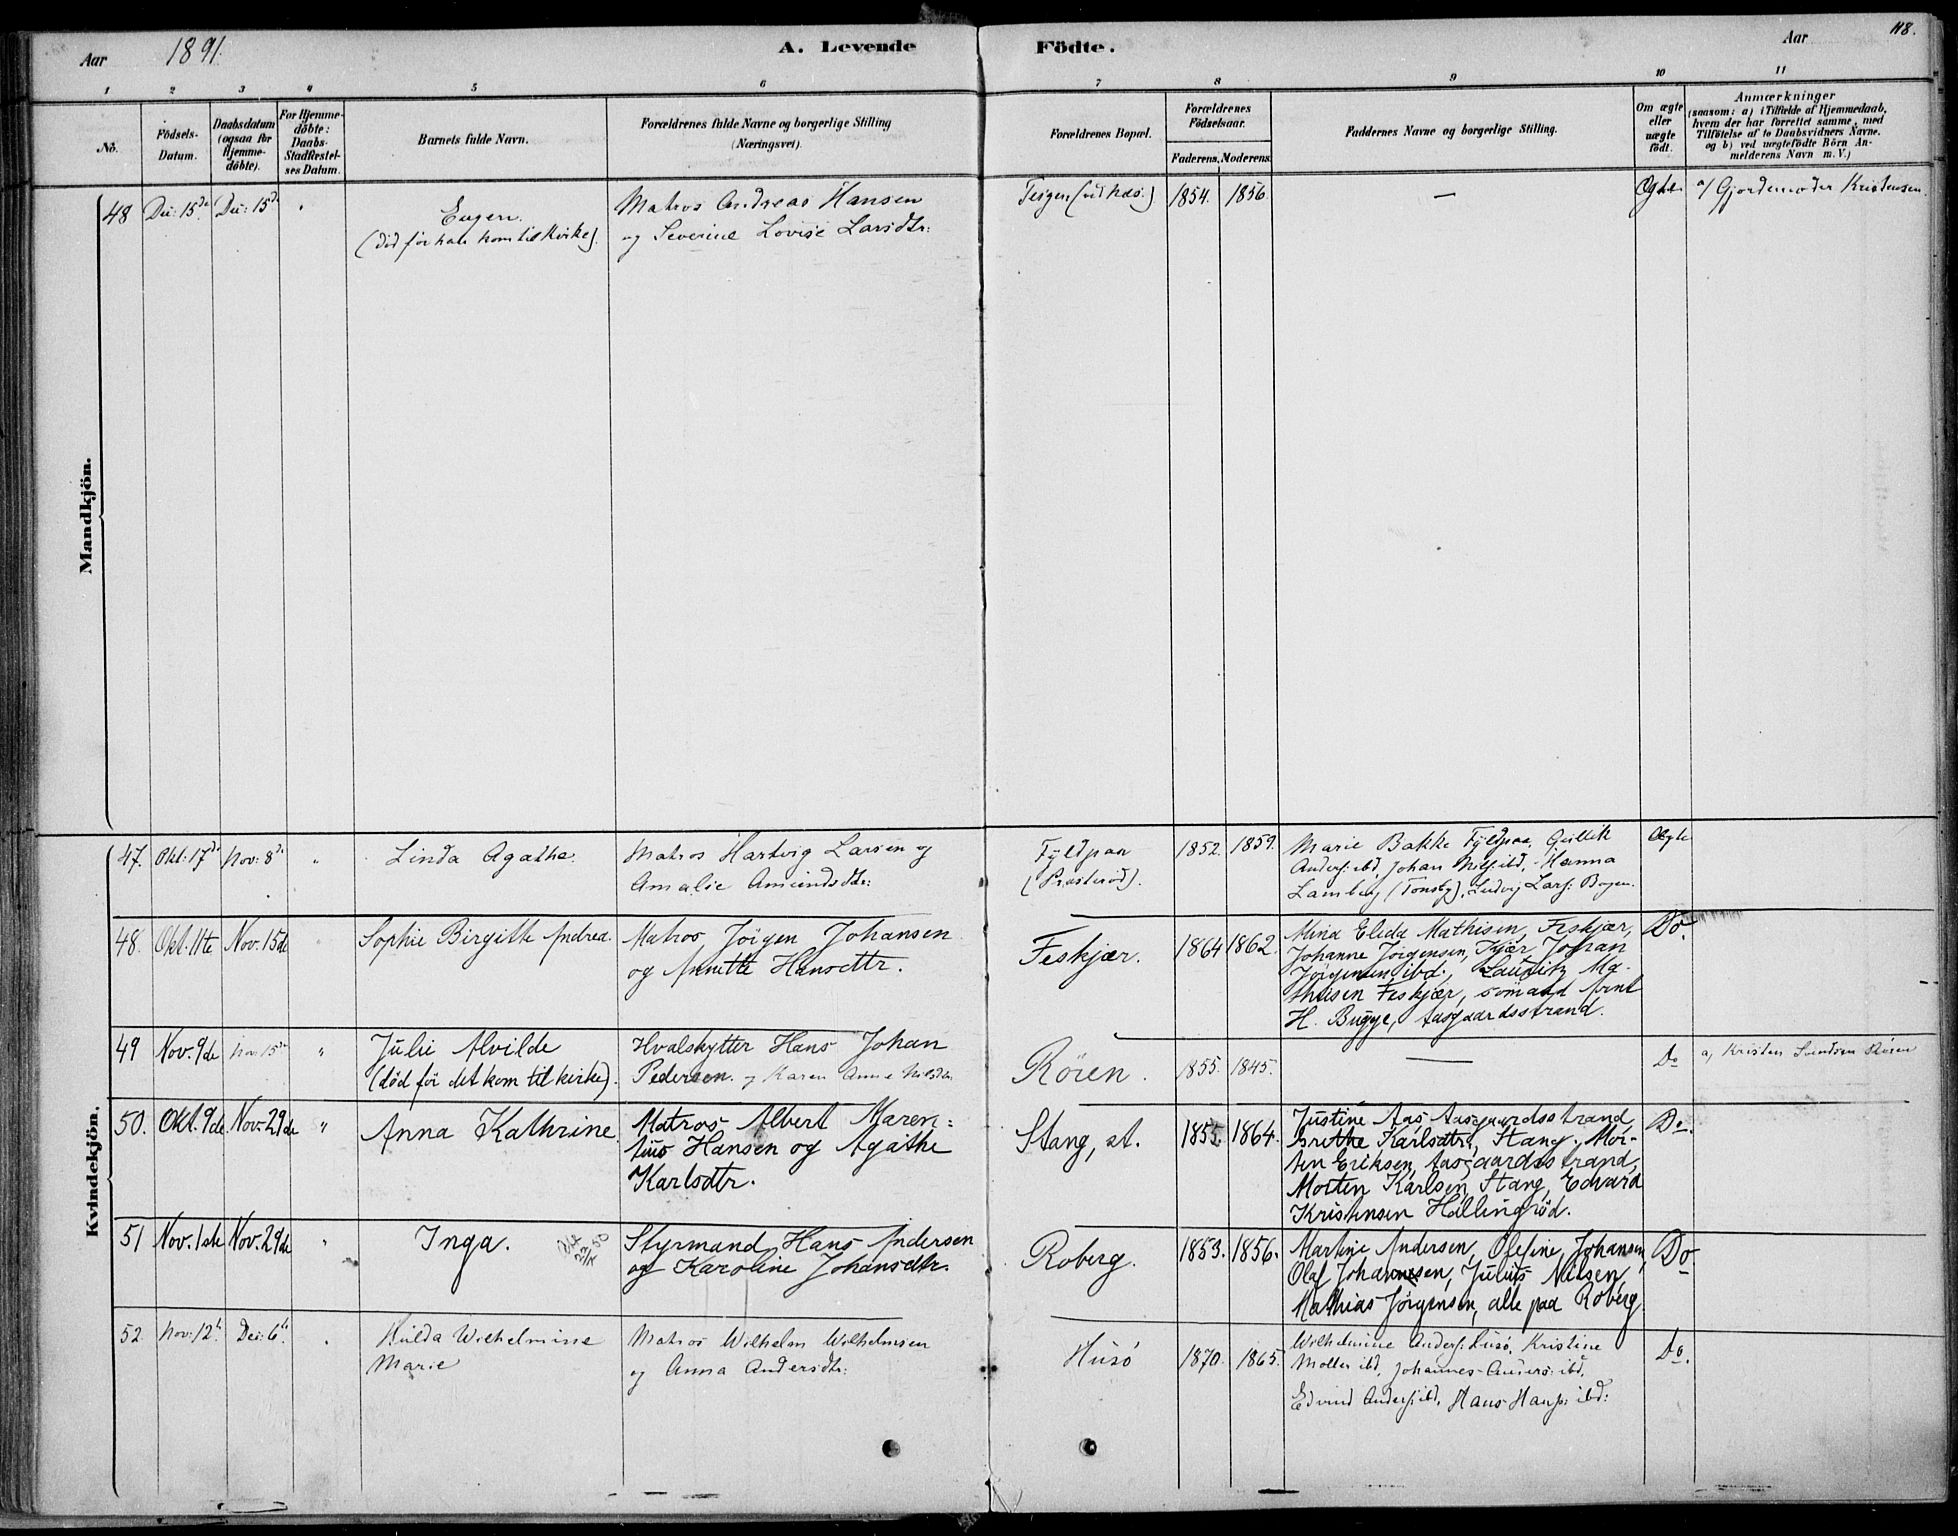 Aar 1891. A. Levende Födte. Aar 118.
1 2 3 4 5 6 7 8 9 10 11
No. Födsels-Datum. Daabsdatum (ogsaa for Hjemmedöbte). For Hjemmedöbte: Daabs-Stadfæstelses Datum. Barnets fulde Navn. Forældrenes fulde Navne og borgerlige Stilling (Næringsvei). Forældrenes Bopæl. Forældrenes Födselsaar. Faderens. Moderens. Faddernes Navne og borgerlige Stilling. Om ægte eller uægte födt. Anmærkninger (saasom: a) i Tilfælde af Hjemmedaab, hvem der har forrettet samme, med Tilföielse af to Daabsvidners Navne. og b) ved uægtefödte Börn Anmelderens Navn m. V.)
Mandkjön.
48 De: 15de De: 15de " Eugen. Matros Andreas Hansen Teigen (ved Næs.) 1854. 1856. — Ægte a/ Gjordemoder Kristensen.
(död för han kom til Kirke). og Severine Lovise Larsdtr:
Kvindekjön.
47. Okt: 17de Nov: 8de " Linda Agathe. Matros Hartvig Larsen og Fyldpaa 1852. 1859. Marie Bakke Fyldpaa, Ægte
Amalie Amundsdtr: (Præsteröd). Anders: ibd, Johan Nils: ibd, Hanna
Lamberg (Tønsbg), Ludvig Lars: Bogen.
48. Okt. 11te Nov. 15de " Sophie Birgitte Andrea. Matros, Jörgen Johansen Feskjær. 1864 1862. Mina Elida Mathisen, Feskjær, Do.
og Annette Hansdttr. Johanne Jörgensen, Kjær, Johan
Jörgensen, ibd., Lauritz Ma-
thisen Feskjær, sömand Arent
H. Bugge, Aasgaardsstrand.
49 Nov. 9de Nov: 15de " Julie Alvilde Hvalskytter Hans Johan Rören. 1855. 1845. — Do a, Kristen Svendsen Rören
(död för det kom til kirke). Pedersen. og Karen Anne Nilsdtr.
50. Okt. 9de Nov. 29de " Anna Kathrine. Matros Albert Maren= Stang, st. 1855. 1864. Justine Aas, Aasgaardsstrand
tius Hansen og Agathe Grethe Karlsdtr., Stang, Mor-
Karlsdtr. ten Eriksen, Aasgaardsstrand,
Morten Karlsen, Stang, Edvard
Kristensen Hallingröd.
51 Nov. 1ste Nov. 29de " Inga. Styrmand Hans Andersen Roberg. 1853. 1856. Martine Andersen, Olefine Johansen, Do
og Karoline Johansdtr. Olaf Johannesen, Julius Nilsen,
Mathias Jörgensen, alle paa Roberg
52. Nov: 12te Dec: 6te " Hulda Wilhelmine Matros Wilhelm Wilhelmsen Husö 1870. 1865. Wilhelmine Anders: Husö, Kristine Do.
Marie og Anna Andersdtr: Möller ibd, Johannes Anders: ibd,
Edvind Anders: ibd, Hans Hans: ibd: